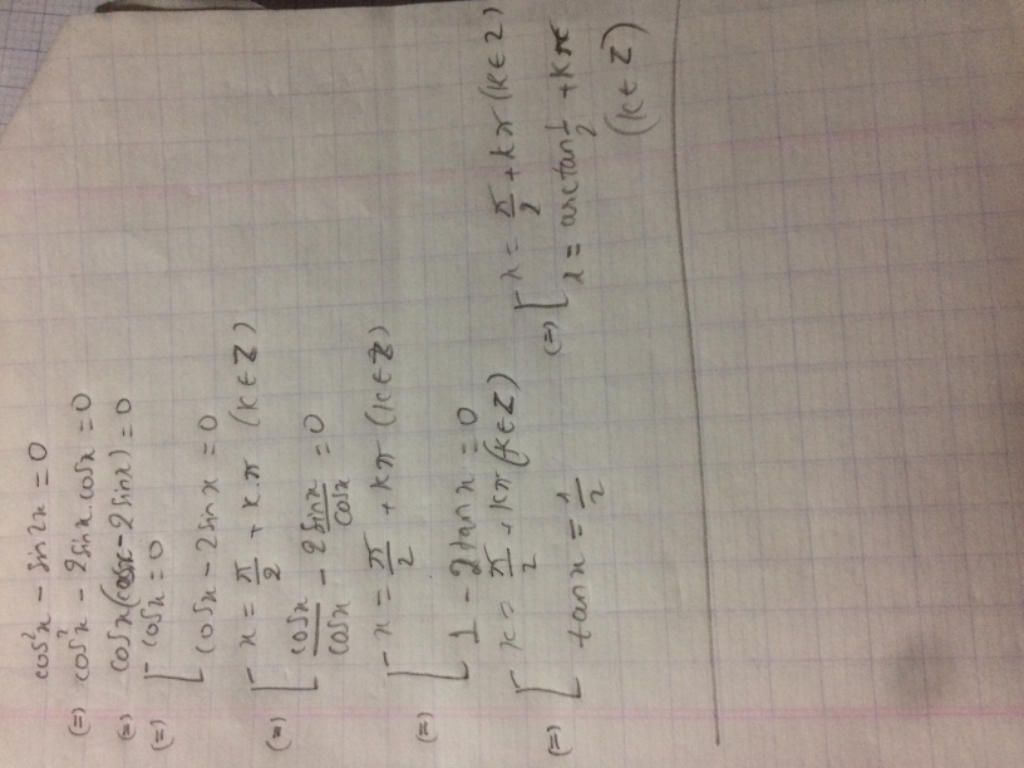 cos²x - sin2x = 0
(=) cos²x - 2sinx.cosx = 0
(=) cosx(cosx - 2sinx) = 0
(=) [ cosx = 0
cosx - 2sinx = 0
(=) [ x = π/2 + kπ (k∈Z)
cosx/cosx - 2sinx/cosx = 0
(=) [ x = π/2 + kπ (k∈Z)
1 - 2tanx = 0
(=) [ x = π/2 + kπ (k∈Z)
tanx = 1/2
(=) [ x = π/2 + kπ (k∈Z)
x = arctan 1/2 + kπ
(k∈Z)